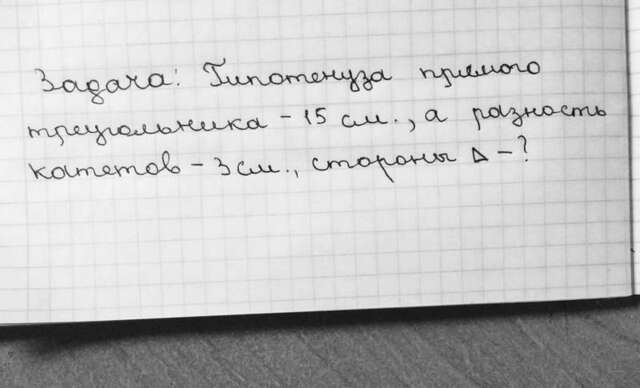 Задача: Гипотенуза прямого
треугольника - 15 см., а разность
катетов - 3 см., стороны Δ - ?